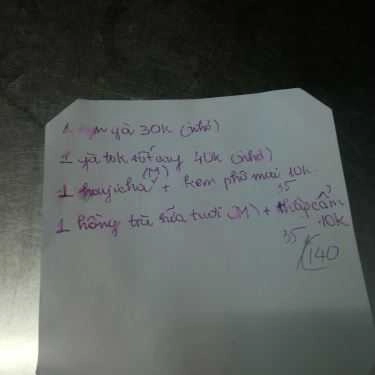 1 gà 30k (nhỏ)
1 gà tok sốt cay 40k (nhỏ)
(M)
1 houjicha + kem phô mai 10k
35
1 hồng trà sữa tươi (M) + thập cẩm
10k
35
140